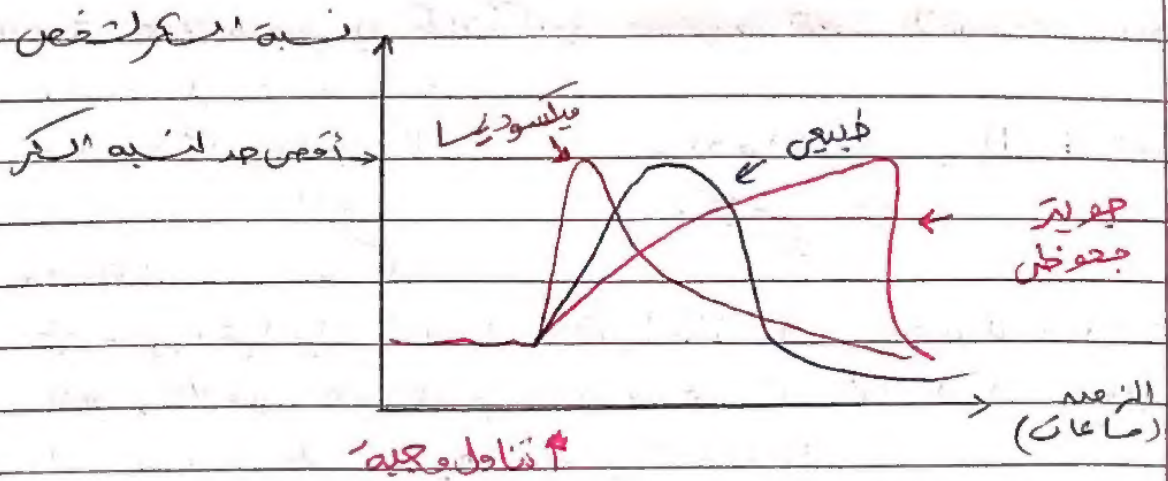 نسبة السكر لشخص
أقصى حد لنسبة السكر
ميكسوديما
طبيعي
جويتر
جحوظى
الزمن
(ساعات)
تناول وجبة